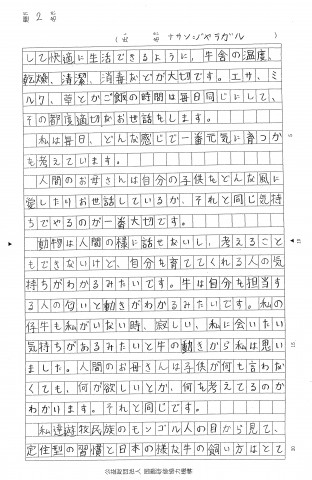 2
ナサンジャラガル
して快適に生活できるように、牛舎の温度、
乾燥、清潔、消毒などが大切です。エサ、ミ
ルク、草とかご飯の時間は毎日同じにして、
その都度適切なお世話をします。
私は毎日、どんな感じで一番元気に育つか
も考えています。
人間のお母さんは自分の子供をどんな風に
愛したりお世話しているか、それと同じ気持
ちでやるのが一番大切です。
動物は人間の様に話せないし、考えること
もできないけど、自分を育ててくれる人の気
持ちがわかるみたいです。牛は自分を担当す
る人の匂いと動きがわかるみたいです。私の
仔牛も私がいない時、寂しい、私に会いたい
気持ちがあるみたいと牛の動きから私は思い
ました。人間のお母さんは子供が何も言わな
くても、何が欲しいとか、何を考えてるのか
わかります。それと同じです。
私達遊牧民族のモンゴル人の目から見て、
定住型の習慣と日本の様な牛の飼い方はとて